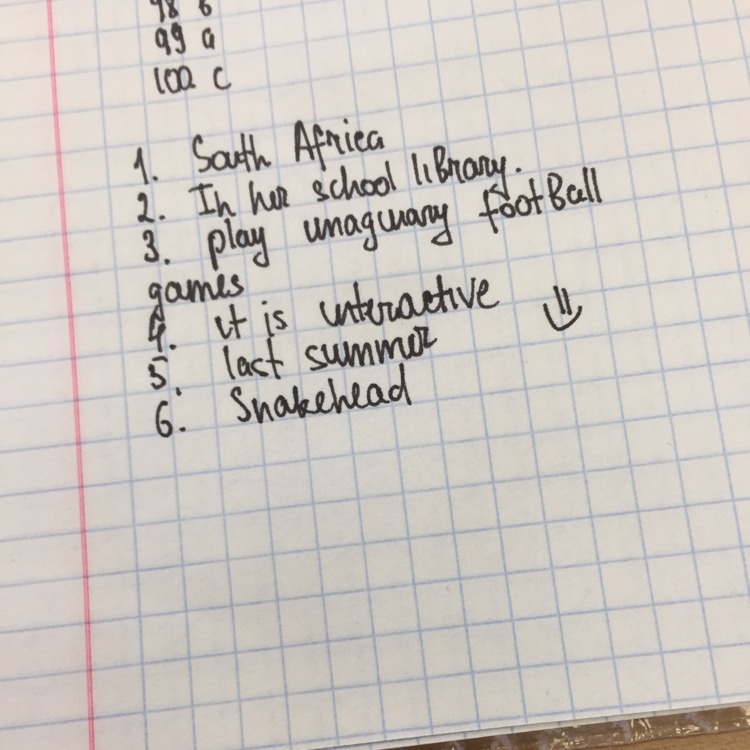 98 b
99 a
100 c
1. South Africa
2. In her school liBrary.
3. play imaginary footBall
games
4. it is interactive
5. last summer
6. Snakehead